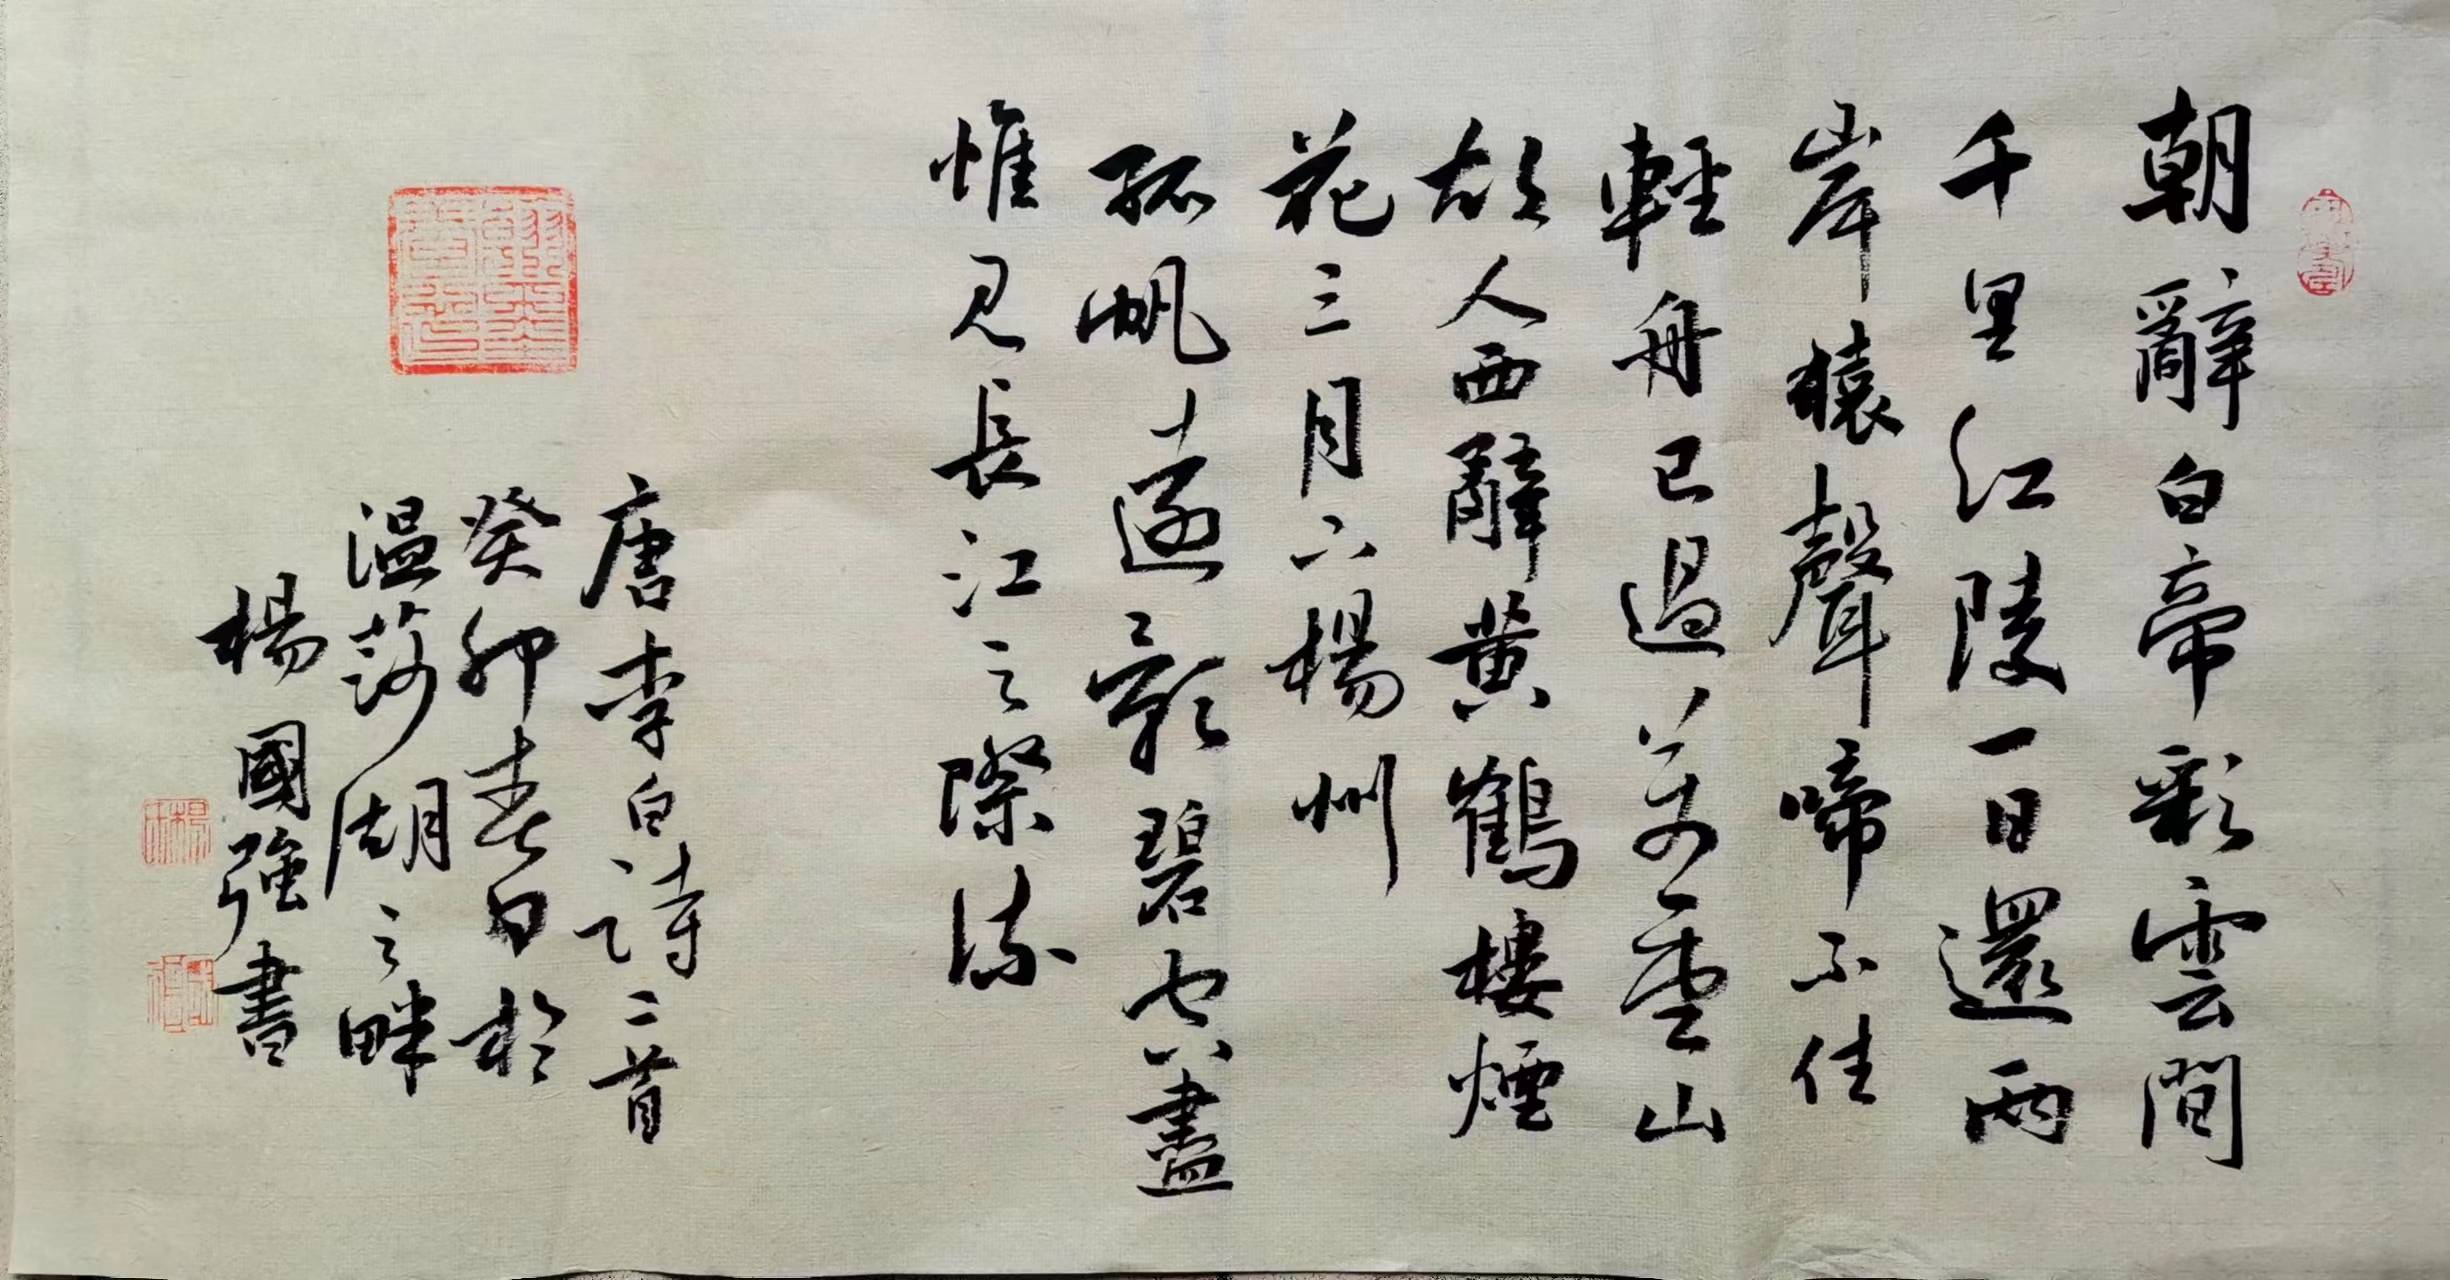 朝辭白帝彩雲間
千里江陵一日還兩
岸猿聲啼不住
輕舟已過萬重山
故人西辭黃鶴樓煙
花三月下楊州
孤帆遠影碧空盡
惟見長江之際流
唐李白詩二首
癸卯春日於
溫莎湖之畔
楊國強書